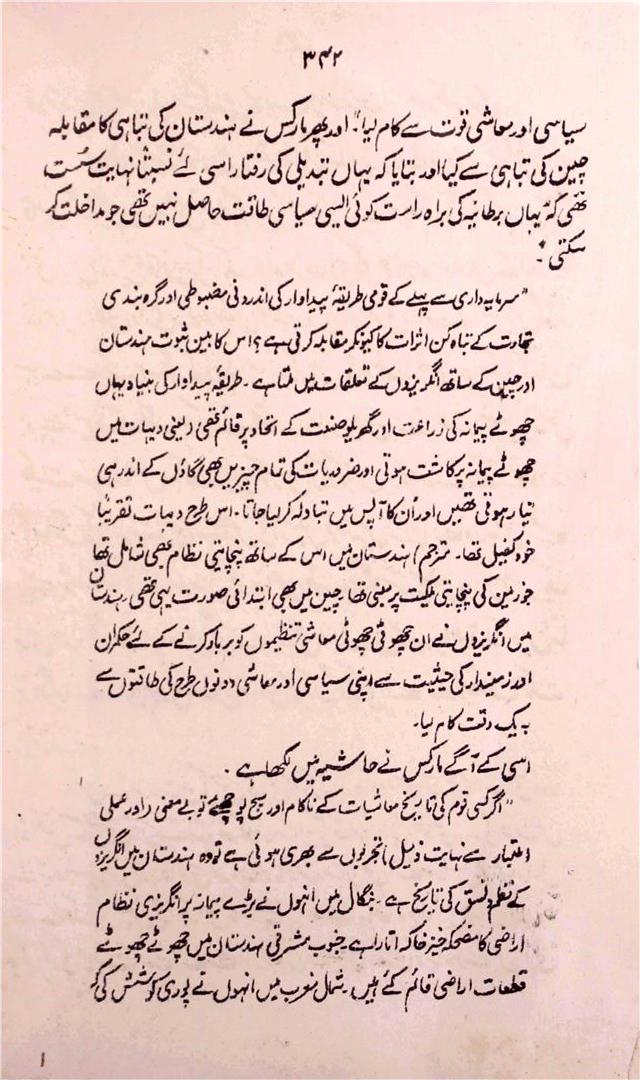 ۳۴۲
سیاسی اور معاشی قوت سے کام لیا"۔ اور پھر مارکس نے ہندستان کی تباہی کا مقابلہ
چین کی تباہی سے کیا اور بتایا کہ یہاں تبدیلی کی رفتار اسی لئے نسبتاً نہایت سست
تھی کہ "یہاں برطانیہ کی براہ راست کوئی ایسی سیاسی طاقت حاصل نہیں تھی جو مداخلت کر
سکتی"۔
"سرمایہ داری سے پہلے کے قومی طریقۂ پیداوار کی اندرونی مضبوطی اور گرہ بندی
تجارت کے تباہ کن اثرات کا کیونکر مقابلہ کرتی ہے؟ اس کا بین ثبوت ہندستان
اور چین کے ساتھ انگریزوں کے تعلقات میں ملتا ہے۔ طریقۂ پیداوار کی بنیاد یہاں
چھوٹے پیمانہ کی زراعت اور گھریلو صنعت کے اتحاد پر قائم تھی (یعنی دیہات میں
چھوٹے پیمانہ پر کاشت ہوتی اور ضروریات کی تمام چیزیں بھی گاؤں کے اندر ہی
تیار ہوتی تھیں اور اُن کا آپس میں تبادلہ کر لیا جاتا۔ اس طرح دیہات تقریباً
خود کفیل تھا۔ مترجم) ہندستان میں اس کے ساتھ پنچایتی نظام بھی شامل تھا
جو زمین کی پنچایتی ملکیت پر مبنی تھا چین میں بھی ابتدائی صورت یہی تھی۔ ہندستان
میں انگریزوں نے ان چھوٹی چھوٹی معاشی تنظیموں کو برباد کرنے کے لئے حکمران
اور زمیندار کی حیثیت سے اپنی سیاسی اور معاشی دونوں طرح کی طاقتوں سے
بہ یک وقت کام لیا۔
اسی کے آگے مارکس نے حاشیہ میں لکھا ہے۔
"اگر کسی قوم کی تاریخ معاشیات کے ناکام اور سچ پوچھئے تو بے معنی (اور عملی
اعتبار سے نہایت ذلیل) تجربوں سے بھری ہوئی ہے تو وہ ہندستان میں انگریزوں
کے نظم و نسق کی تاریخ ہے۔ بنگال میں انہوں نے بڑے پیمانہ پر انگریزی نظام
اراضی کا مضحکہ خیز خاکہ اتارا ہے۔ جنوب مشرقی ہندستان میں چھوٹے چھوٹے
قطعات اراضی قائم کئے ہیں۔ شمال مغرب میں انہوں نے پوری کوشش کی کہ